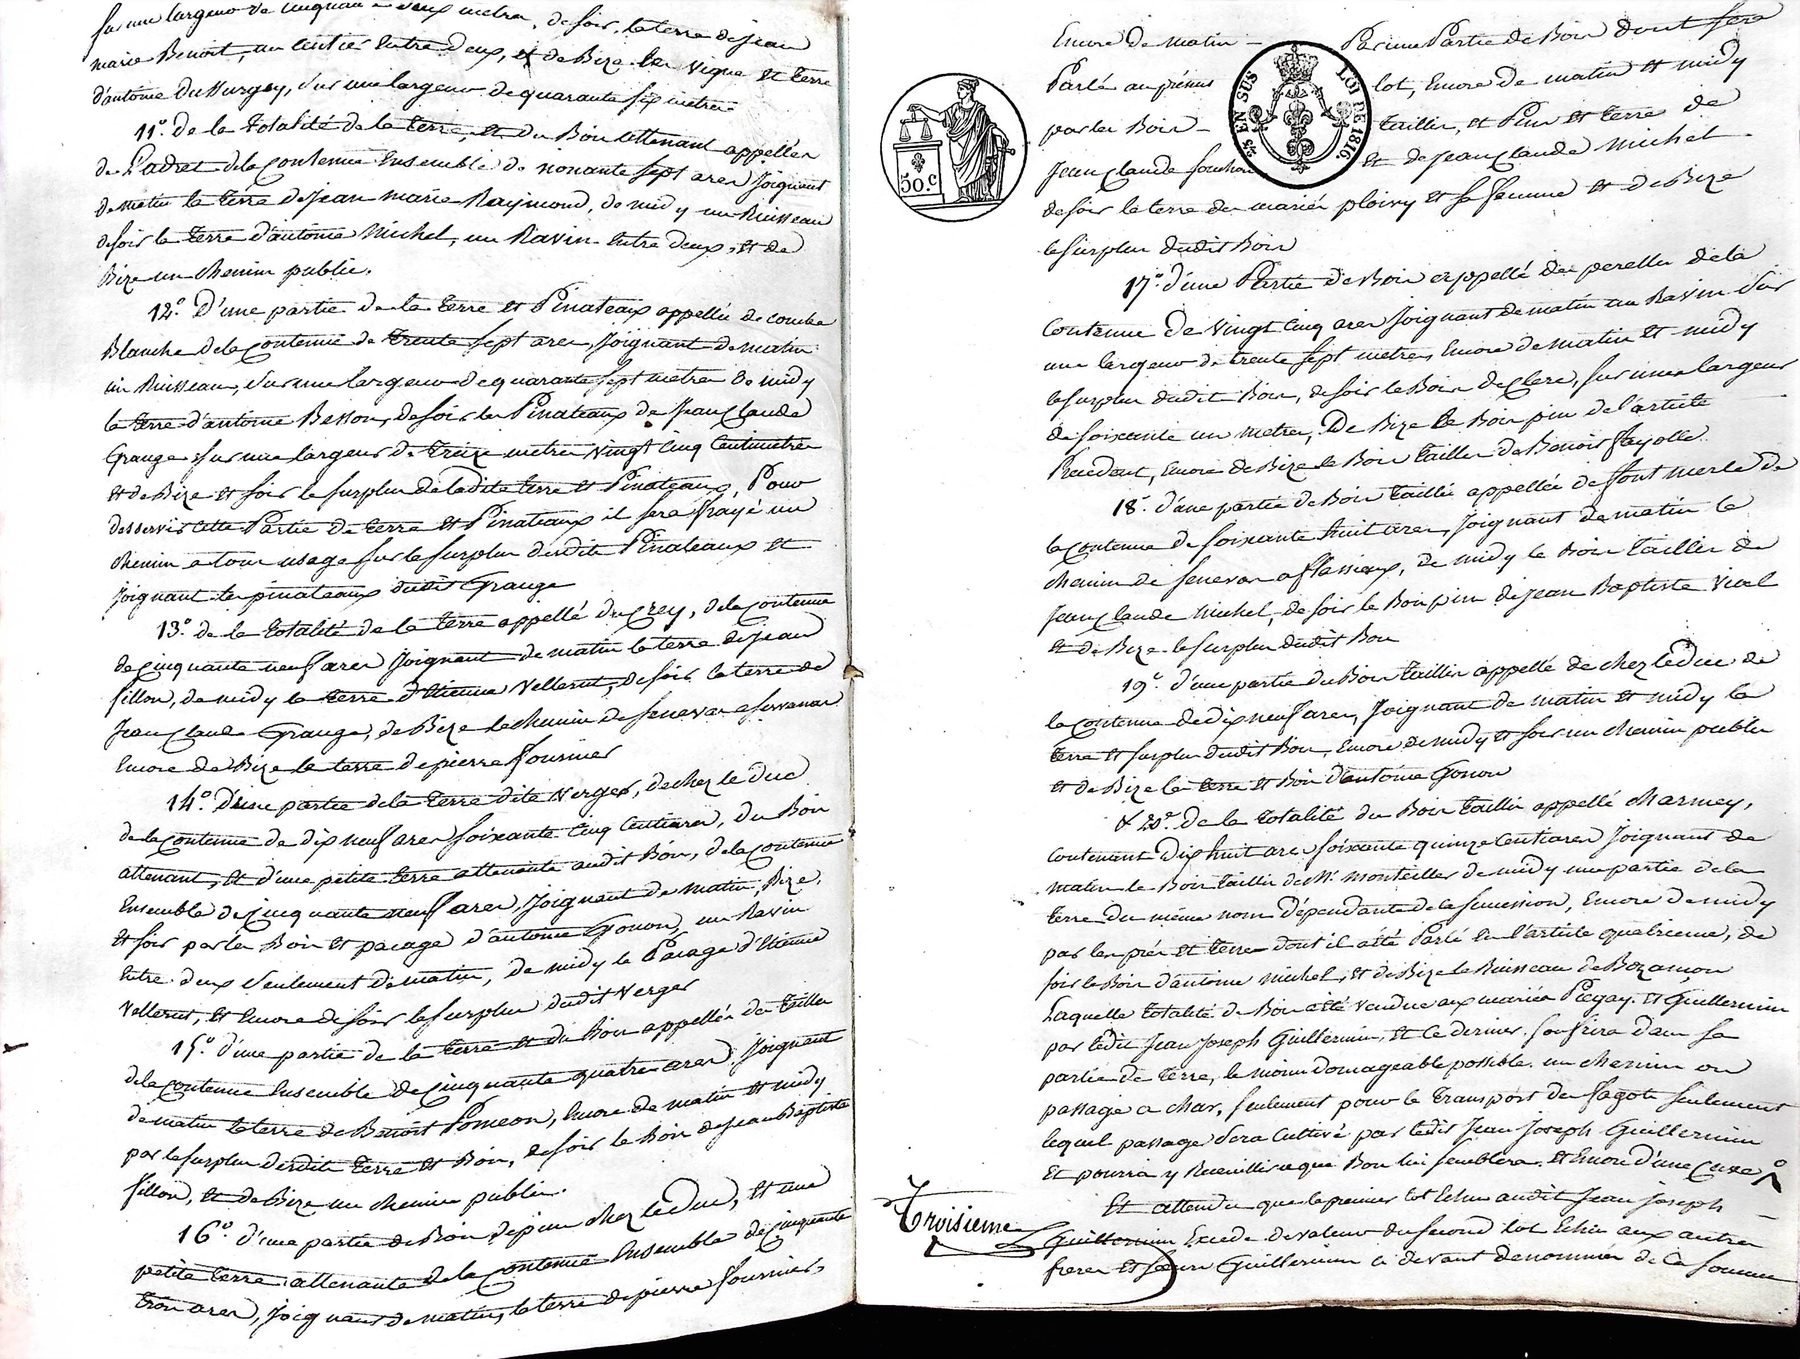 sur une largeur de cinquante deux metres, de soir, la terre de jean
marie Benoit, un sentier entre deux, et de Bize les vigne et terre
d'antoine dussurgey, sur une largeur de quarante six metres
11.° de la totalité de la terre, et du Bois attenant appellés
de l'adret de la Contenue Ensemble de nonante sept ares joignant
de matin la terre de jean marie Raymond, de midy un Ruisseau
de soir la terre d'antoine Michel, un Ravin entre deux, et de
Bize un chemin public.
12.° D'une partie de la terre et Pinateaux appellée de combe
Blanche de la Contenue de trente sept ares, joignant de matin
un Ruisseau, sur une largeur de quarante sept metres de midy
la terre d'antoine Besson, de soir les Pinateaux de Jean Claude
Grange sur une largeur de treize metres vingt cinq Centimetres
et de Bize et soir le surplus de ladite terre et Pinateaux, Pour
desservir cette Partie de terre et Pinateaux il sera frayé un
chemin a tous usage sur le surplus desdits Pinateaux et
joignant les pinateaux dudit Grange
13.° de la totalité de la terre appellé du Crey, de la Contenue
de cinquante neuf ares joignant de matin la terre de jean
sillon, de midy la terre d'Etienne Vellerut, de soir la terre de
Jean Claude Grange, de Bize le chemin de senevas a
Encore de Bize la terre de pierre fournier
14.° D'une partie de la terre dite verger, de chez le duc
de la Contenue de dix neuf ares soixante cinq Centiares, du Bois
attenant, et d'une petite terre attenante audit Bois, de la Contenue
Ensemble de Cinquante neuf ares, joignant de matin, Bize,
et soir par les Bois et pacage d'antoine Gonon, un Ravin
Entre deux seulement de matin, de midy le Pacage d'Etienne
Vellerut, et Encore de soir le surplus dudit verger
15.° d'une partie de la terre et du Bois appellés du taillis
de la Contenue Ensemble de Cinquante quatre ares joignant
de matin la terre de Benoit Pomeon, Encore de matin et midy
par le surplus desdits terre et Bois, de soir le Bois de jean Baptiste
sillon, et de Bize un chemin public.
16.° d'une partie de Bois de pin chez le duc, et une
petite terre attenante de la Contenue Ensemble de cinquante
trois ares, joignant de matin, la terre de pierre fournier,
Encore de matin Par une Partie de Bois dont sera
Parlé au present lot, Encore de matin et midy
par les Bois taillis, et Pin et terre de
Jean Claude souchon et de jean Claude Michel
de soir la terre des mariés ploivy et sa femme et de Bize
le surplus dudit Bois
50.C
25 EN SUS LOI DE 1816.
17.° d'une Partie de Bois appellé du perellu de la
Contenue de vingt cinq ares joignant de matin un Ravin sur
une largeur de trente sept metres, Encore de matin et midy
le surplus dudit Bois, de soir le Bois de Clere, sur une largeur
de soixante un metres, De Bize le Bois pin de l'article
Précédent, Encore de Bize le Bois taillis de Benoit fayolle
18.° d'une partie de Bois taillis appellée de font merle de
la Contenue de soixante huit ares, joignant de matin le
chemin de senevas a flassieux, de midy le Bois taillis de
Jean Claude Michel, de soir le Bois pin de jean Baptiste Vial
et de Bize le surplus dudit Bois
19.° d'une partie du Bois taillis appellé de chez le Duc de
la Contenue de dix neuf ares, joignant de matin et midy la
terre et surplus dudit Bois, Encore de midy et soir un chemin public
et de Bize les terre et Bois d'antoine Gonon
& 20.° De la totalité du Bois taillis appellé charmey,
Contenant Dix huit ares soixante quinze Centiares joignant de
matin le Bois taillis de Mr. Monteiller de midy une partie de la
terre du même nom dépendante de la succession, Encore de midy
par les prés et terre dont il a été Parlé En l'article quatrieme, de
soir le Bois d'antoine Michel, et de Bize le Ruisseau de Bozançon
Laquelle totalité de Bois a été vendue aux mariés Piegay et Guillermin
par ledit Jean Joseph Guillermin, et Ce dernier souffrira dans sa
partie de terre, le moins domageable possible un chemin ou
passage a char, seulement pour le transport des fagots seulement
lequel passage sera Cultivé par ledit Jean Joseph Guillermin
et pourra y Recueillir ce que Bon lui semblera. et Encore d'une Cuve
Et attendu que le premier lot Echu audit Jean joseph
Troisieme
Guillermin Excede de valeur du second lot Echu aux autres
freres et sœurs Guillermin ci devant denommés de la somme